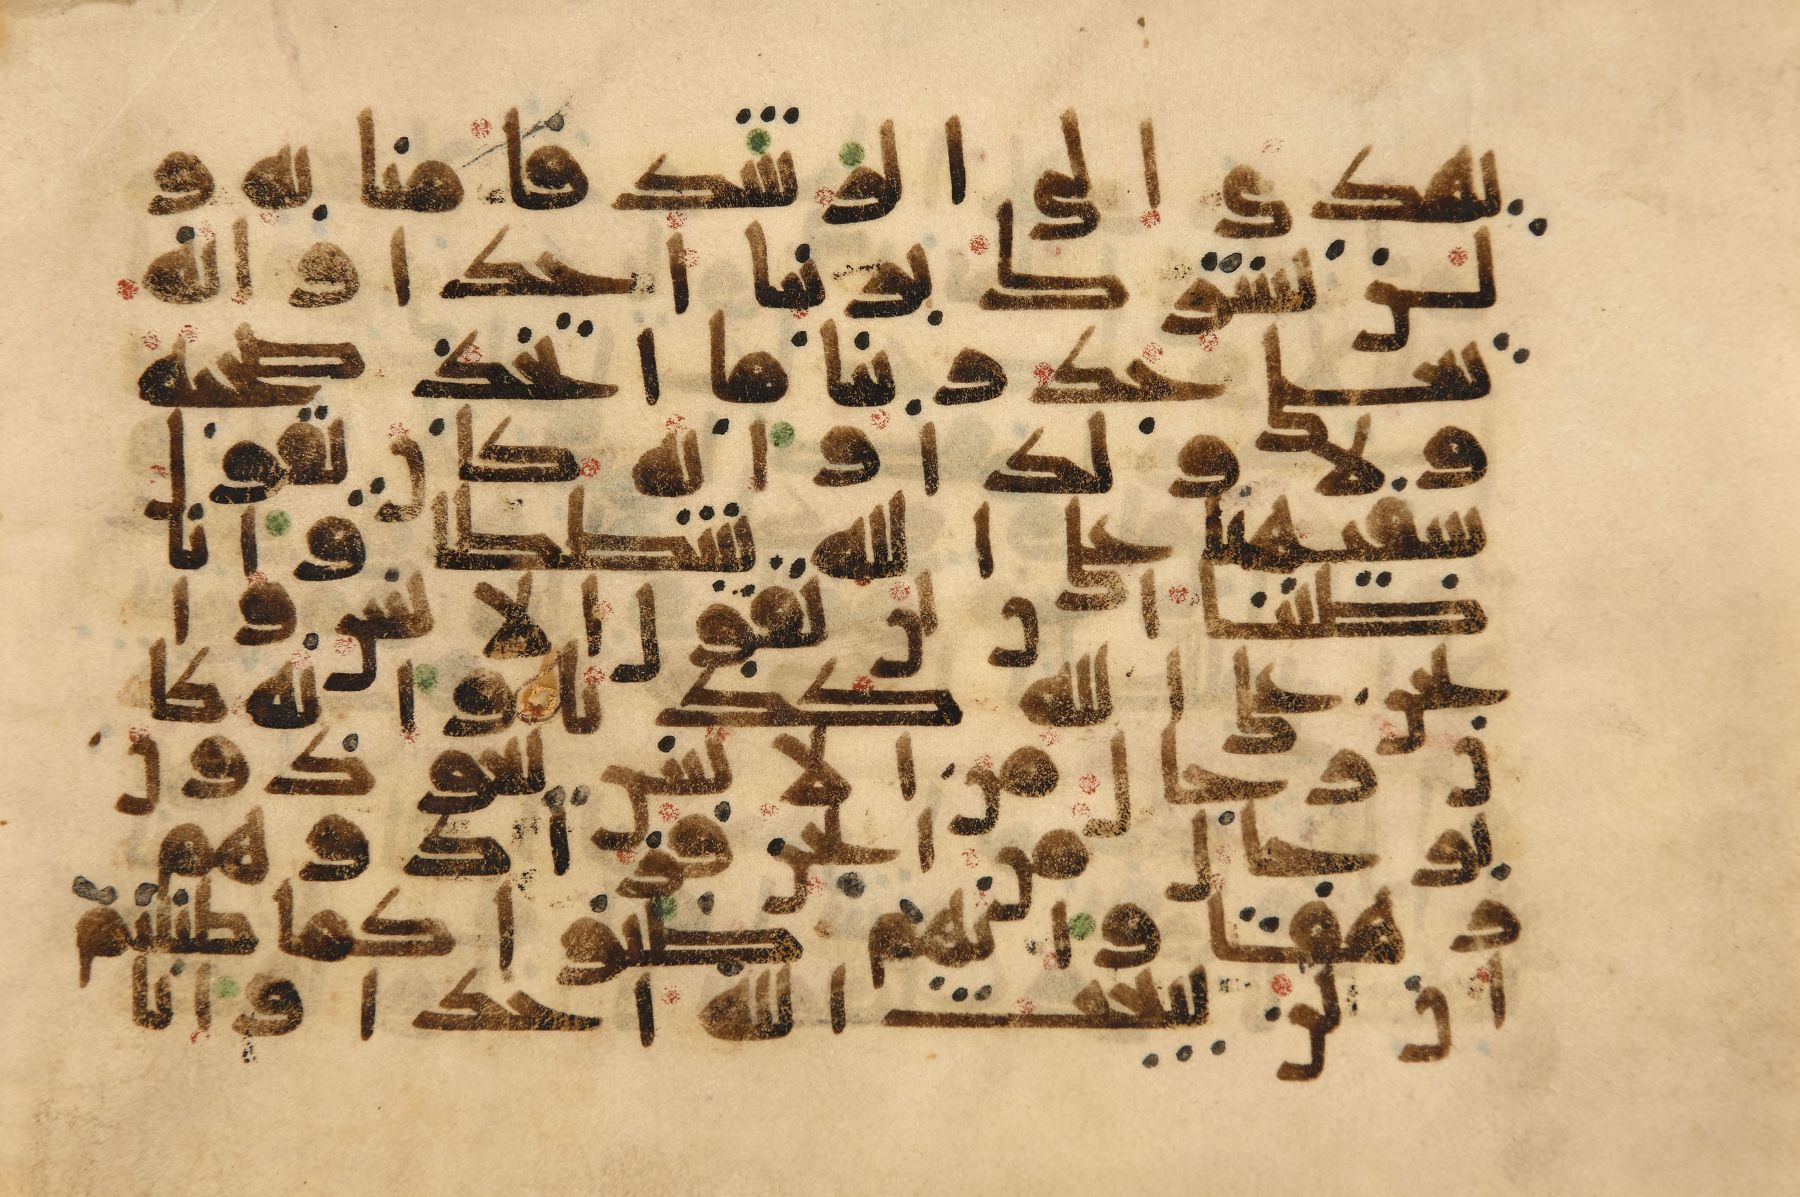 يهدى الى الرشد فامنا به و
لن نشرك بربنا احدا وانه
تعلى جد ربنا ما اتخذ صحبه
ولا ولدا وانه كان يقول
سفيهنا على الله شططا وانا
ظننا ان لن تقول الانس وا
لجن على الله كذبا وانه كا
ن رجال من الانس يعوذون
برجال من الجن فزادوهم
رهقا وانهم ظنوا كما ظننتم
ان لن يبعث الله احدا وانا